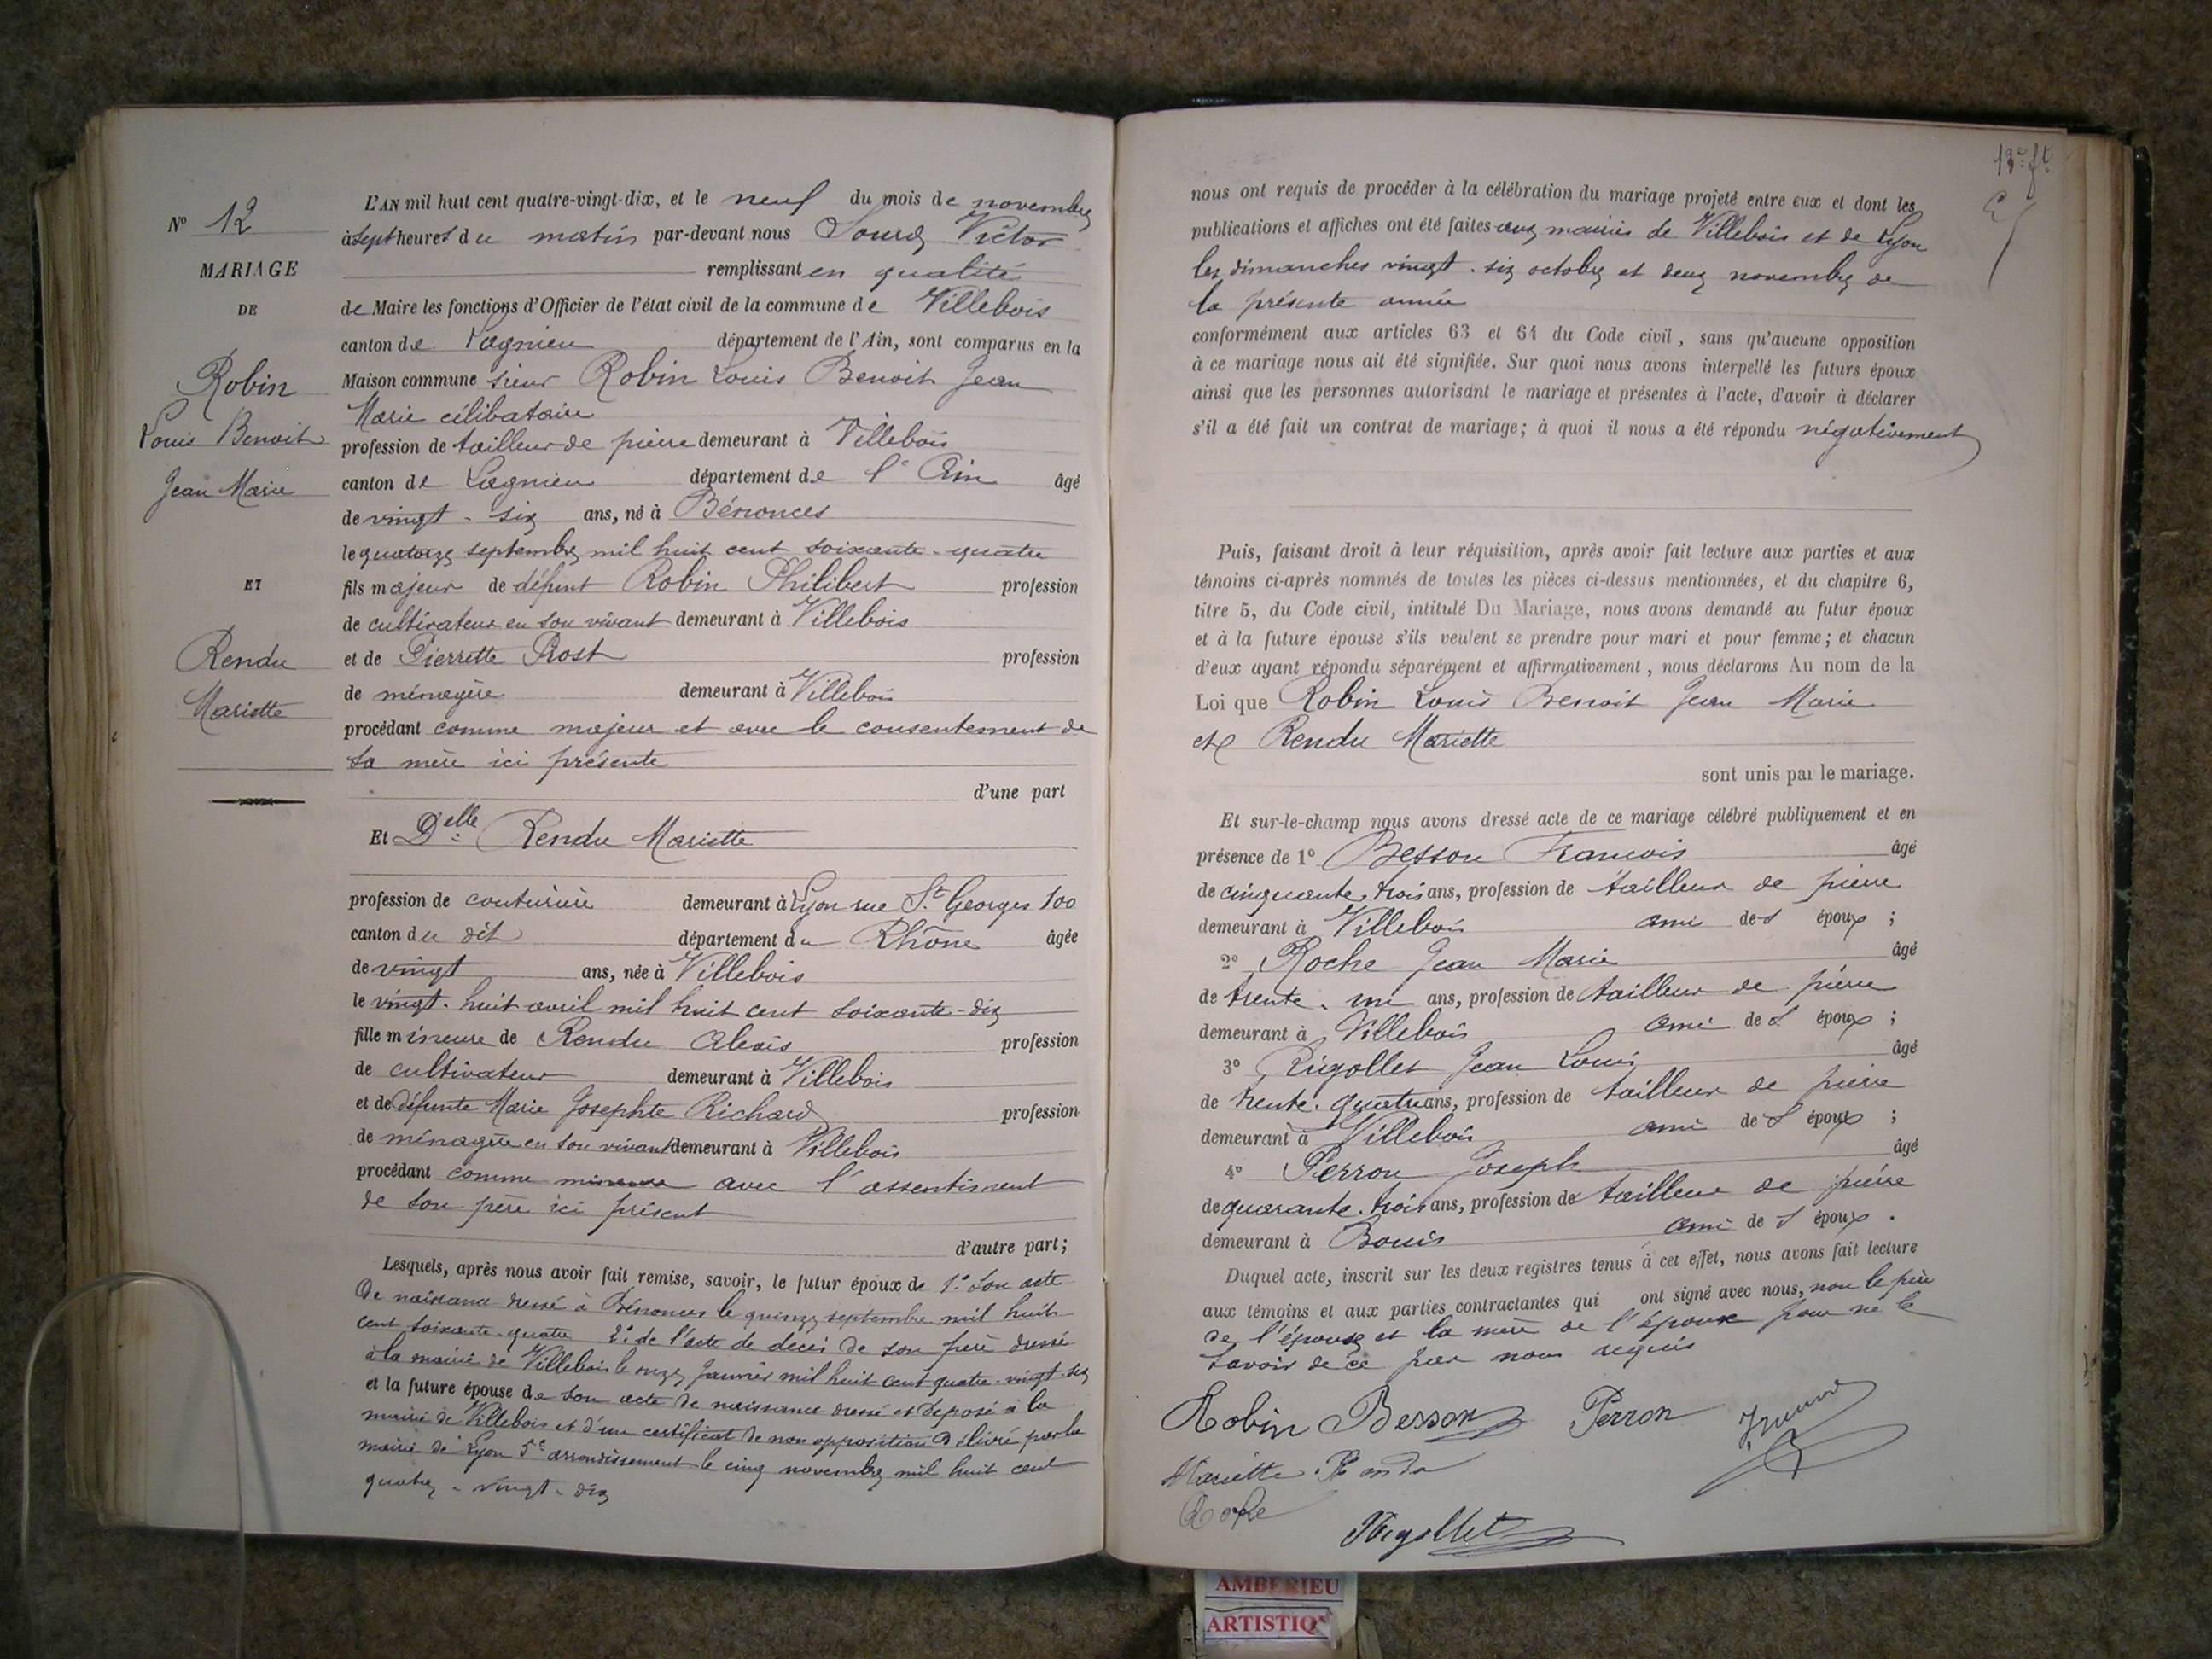 N° 12
MARIAGE
DE
Robin
Louis Benoit
Jean Marie
ET
Rendu
Mariette
L'AN mil huit cent quatre-vingt-dix, et le neuf du mois de novembre
à sept heures du matin par-devant nous Lourd Victor
remplissant en qualité
de Maire les fonctions d'Officier de l'état civil de la commune de Villebois
canton de Lagnieu département de l'Ain, sont comparus en la
Maison commune sieur Robin Louis Benoit Jean
Marie célibataire
profession de tailleur de pierre demeurant à Villebois
canton de Lagnieu département de l'Ain âgé
de vingt-six ans, né à Bénonces
le quatorze septembre mil huit cent soixante-quatre
fils majeur de défunt Robin Philibert profession
de cultivateur en son vivant demeurant à Villebois
et de Pierrette Prost profession
de ménagère demeurant à Villebois
procédant comme majeur et avec le consentement de
sa mère ici présente
d'une part
Et Delle Rendu Mariette
profession de couturière demeurant à Lyon rue St Georges 100
canton du dit département du Rhône âgée
de vingt ans, née à Villebois
le vingt-huit avril mil huit cent soixante-dix
fille mineure de Rendu Alexis profession
de cultivateur demeurant à Villebois
et de défunte Marie Josephte Richard profession
de ménagère en son vivant demeurant à Villebois
procédant comme mineure avec l'assentiment
de son père ici présent
d'autre part;
Lesquels, après nous avoir fait remise, savoir, le futur époux de 1° son acte
de naissance dressé à Bénonces le quinze septembre mil huit
cent soixante-quatre 2° de l'acte de décès de son père dressé
à la mairie de Villebois le onze janvier mil huit cent quatre-vingt-six
et la future épouse de son acte de naissance dressé et déposé à la
mairie de Villebois et d'un certificat de non opposition délivré par la
mairie de Lyon 5e arrondissement le cinq novembre mil huit cent
quatre-vingt-dix
13e ft
nous ont requis de procéder à la célébration du mariage projeté entre eux et dont les
publications et affiches ont été faites aux mairies de Villebois et de Lyon
les dimanches vingt-six octobre et deux novembre de
la présente année
conformément aux articles 63 et 64 du Code civil, sans qu'aucune opposition
à ce mariage nous ait été signifiée. Sur quoi nous avons interpellé les futurs époux
ainsi que les personnes autorisant le mariage et présentes à l'acte, d'avoir à déclarer
s'il a été fait un contrat de mariage; à quoi il nous a été répondu négativement
Puis, faisant droit à leur réquisition, après avoir fait lecture aux parties et aux
témoins ci-après nommés de toutes les pièces ci-dessus mentionnées, et du chapitre 6,
titre 5, du Code civil, intitulé Du Mariage, nous avons demandé au futur époux
et à la future épouse s'ils veulent se prendre pour mari et pour femme; et chacun
d'eux ayant répondu séparément et affirmativement, nous déclarons Au nom de la
Loi que Robin Louis Benoit Jean Marie
et Rendu Mariette
sont unis par le mariage.
Et sur-le-champ nous avons dressé acte de ce mariage célébré publiquement et en
présence de 1° Besson Francois âgé
de cinquante-trois ans, profession de tailleur de pierre
demeurant à Villebois ami des époux;
2° Roche Jean Marie âgé
de trente-un ans, profession de tailleur de pierre
demeurant à Villebois ami des époux;
3° Rigollet Jean Louis âgé
de trente-quatre ans, profession de tailleur de pierre
demeurant à Villebois ami des époux;
4° Perron Joseph âgé
de quarante-trois ans, profession de tailleur de pierre
demeurant à Bouis ami des époux.
Duquel acte, inscrit sur les deux registres tenus à cet effet, nous avons fait lecture
aux témoins et aux parties contractantes qui ont signé avec nous, non le père
de l'épouse et la mère de l'époux pour ne le
savoir de ce par nous requis
Robin Besson Perron
Mariette Rendu
Roche
Rigollet
AMBERIEU
ARTISTIQ